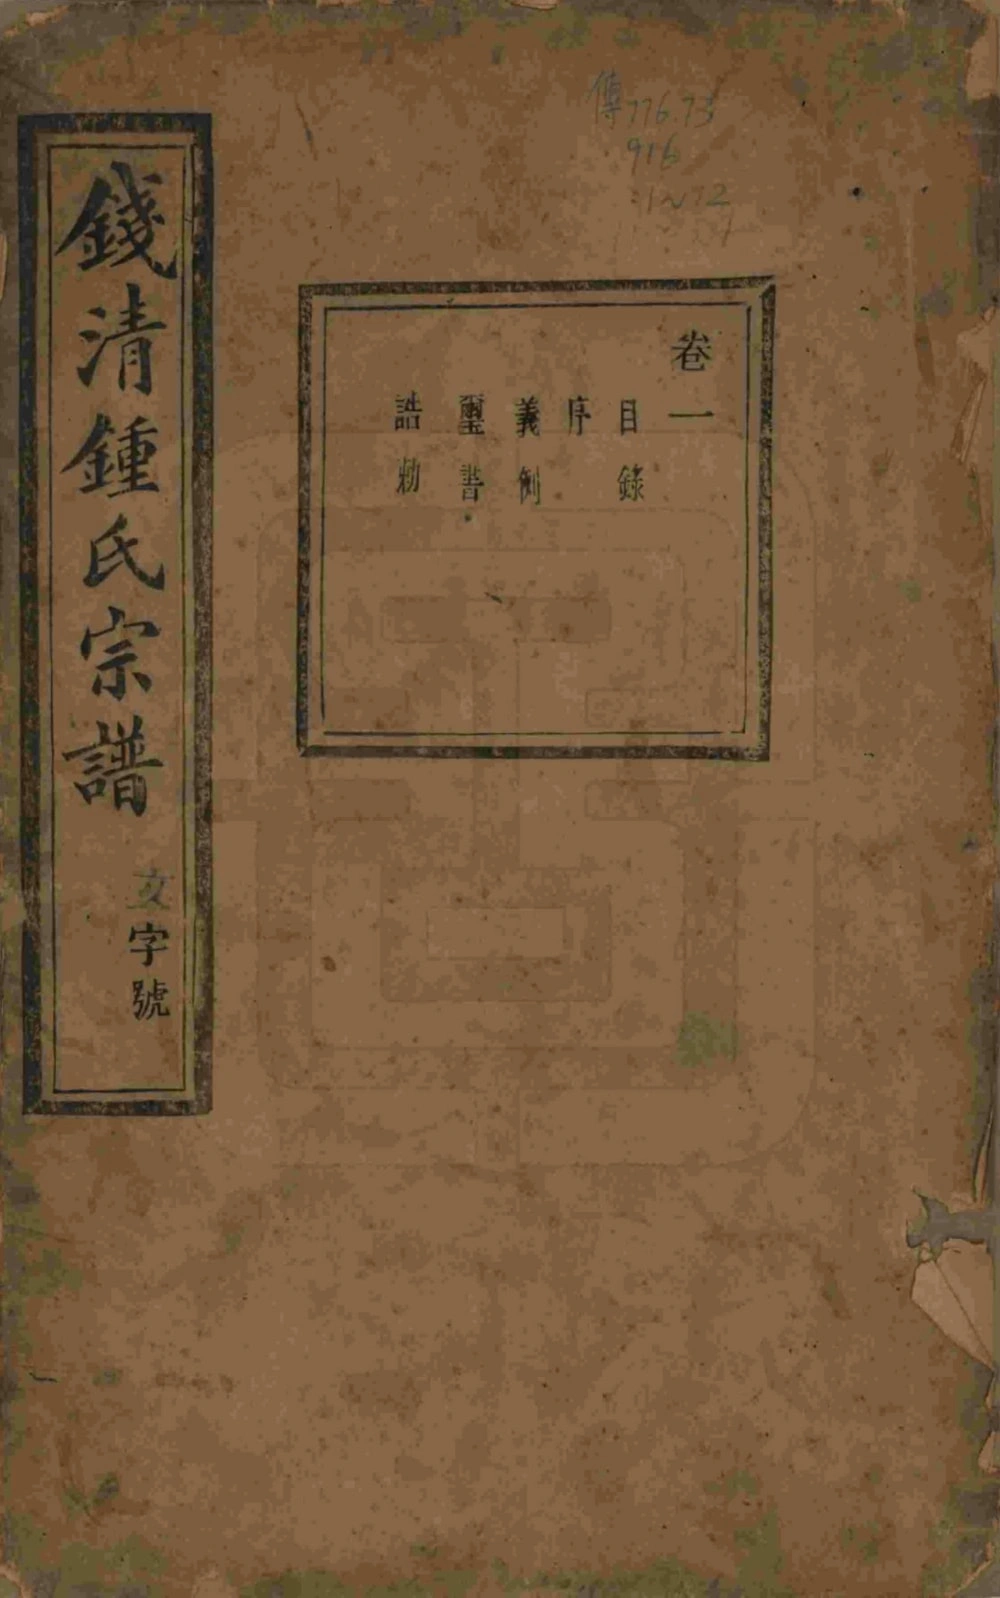 傳776.73
916
:1~12
卷一
目錄
序
義例
璽書
誥勅
錢清鍾氏宗譜
文字號